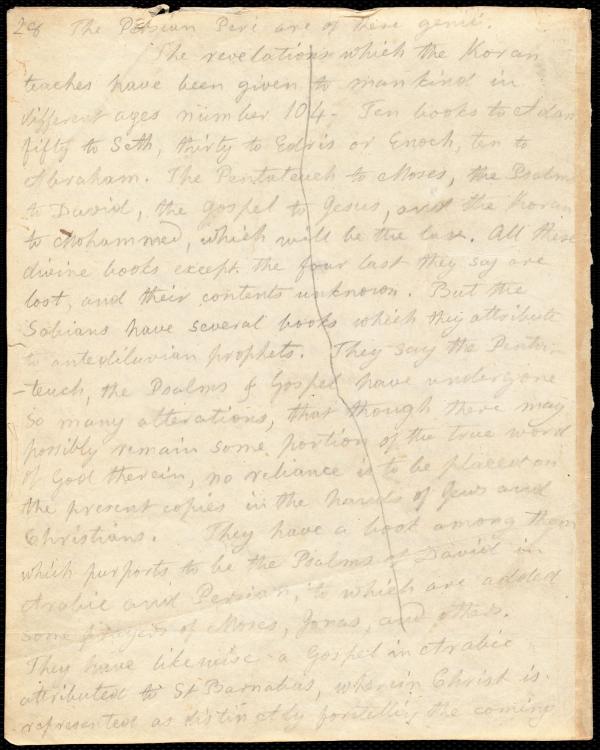 28 The Persian Peri are of these genii.
The revelations which the Koran
teaches have been given to mankind in
different ages number 104. Ten books to Adam
fifty to Seth, thirty to Edris or Enoch, ten to
Abraham. The Pentateuch to Moses, the Psalms
to David, the Gospel to Jesus, and the Koran
to Mohammed, which will be the last. All these
divine books except the four last they say are
lost, and their contents unknown. But the
Sabians have several books which they attribute
to antediluvian prophets. They say the Penta-
-teuch, the Psalms & Gospel have undergone
so many alterations, that though there may
possibly remain some portion of the true word
of God therein, no reliance is to be placed on
the present copies in the hands of Jews and
Christians. They have a book among them
which purports to be the Psalms of David in
Arabic and Persian, to which are added
some prayers of Moses, Jonas, and others.
They have likewise a Gospel in Arabic
attributed to St Barnabas, wherein Christ is
represented as distinctly foretelling the coming